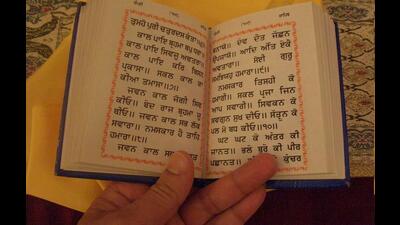 ਕਾਲ ਪਾਇ ਬ੍ਰਹਮਾ ਬਪੁ ਧਰਾ॥
ਕਾਲ ਪਾਇ ਸਿਵਜੂ ਅਵਤਰਾ॥
ਕਾਲ ਪਾਇ ਕਰਿ ਬਿਸਨ
ਪ੍ਰਕਾਸਾ॥ ਸਕਲ ਕਾਲ ਕਾ
ਕੀਆ ਤਮਾਸਾ॥੭॥
ਜਵਨ ਕਾਲ ਜੋਗੀ ਸਿਵ
ਕੀਓ॥ ਬੇਦ ਰਾਜ ਬ੍ਰਹਮਾ ਜੂ
ਥੀਓ॥ ਜਵਨ ਕਾਲ ਸਭ ਲੋਕ
ਸਵਾਰਾ॥ ਨਮਸਕਾਰ ਹੈ ਤਾਹਿ
ਹਮਾਰਾ॥੮॥
ਜਵਨ ਕਾਲ ਸਭ
ਬਨਾਯੋ॥ ਦੇਵ ਦੈਤ ਜੱਛਨ
ਉਪਜਾਯੋ॥ ਆਦਿ ਅੰਤਿ ਏਕੈ
ਅਵਤਾਰਾ॥ ਸੋਈ ਗੁਰੂ
ਸਮਝਿਯਹੁ ਹਮਾਰਾ॥੯॥
ਨਮਸਕਾਰ ਤਿਸਹੀ ਕੋ
ਹਮਾਰੀ॥ ਸਕਲ ਪ੍ਰਜਾ ਜਿਨ
ਆਪ ਸਵਾਰੀ॥ ਸਿਵਕਨ ਕੋ
ਸਵਗੁਨ ਸੁਖ ਦੀਓ॥ ਸੱਤ੍ਰੁਨ ਕੋ
ਪਲ ਮੋ ਬਧ ਕੀਓ॥੧੦॥
ਘਟ ਘਟ ਕੇ ਅੰਤਰ ਕੀ
ਜਾਨਤ॥ ਭਲੇ ਬੁਰੇ ਕੀ ਪੀਰ
ਪਛਾਨਤ॥ ਕੁੰਚਰ